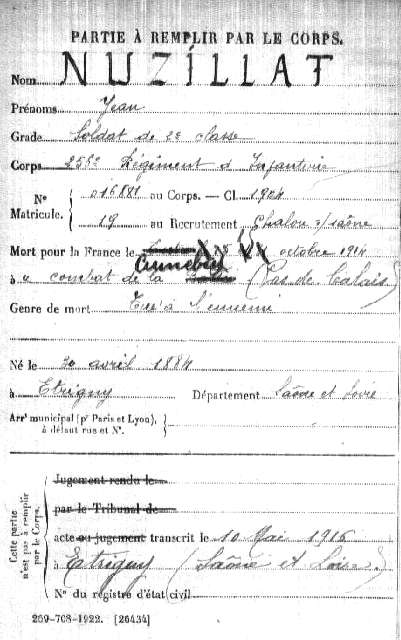 PARTIE À REMPLIR PAR LE CORPS.
Nom NUZILLAT
Prénoms Jean
Grade Soldat de 2e classe
Corps 256e Régiment d'Infanterie
N° Matricule. 016881 au Corps. — Cl. 1904
19 au Recrutement Chalon s/saône
Mort pour la France le octobre 1914
à combat de la (Pas de Calais)
Genre de mort Tué à l'ennemi
Né le 30 avril 1884
à Etrigny Département Saône et Loire
Arrt municipal (pr Paris et Lyon), à défaut rue et N°.
Cette partie n'est pas à remplir par le Corps.
Jugement rendu le
par le Tribunal de
acte ou jugement transcrit le 10 Mai 1916
à Etrigny (Saône et Loire)
N° du registre d'état civil
209-708-1922. [26434]